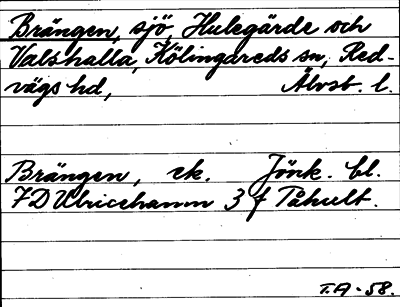 Brängen, sjö, Hulegärde och
Valshalla, Kölingareds sn, Red-
vägs hd, Älvsb. l.
Brängen, ek. Jönk. bl.
7D Ulricehamn 3 f Påhult.
T.A-58.